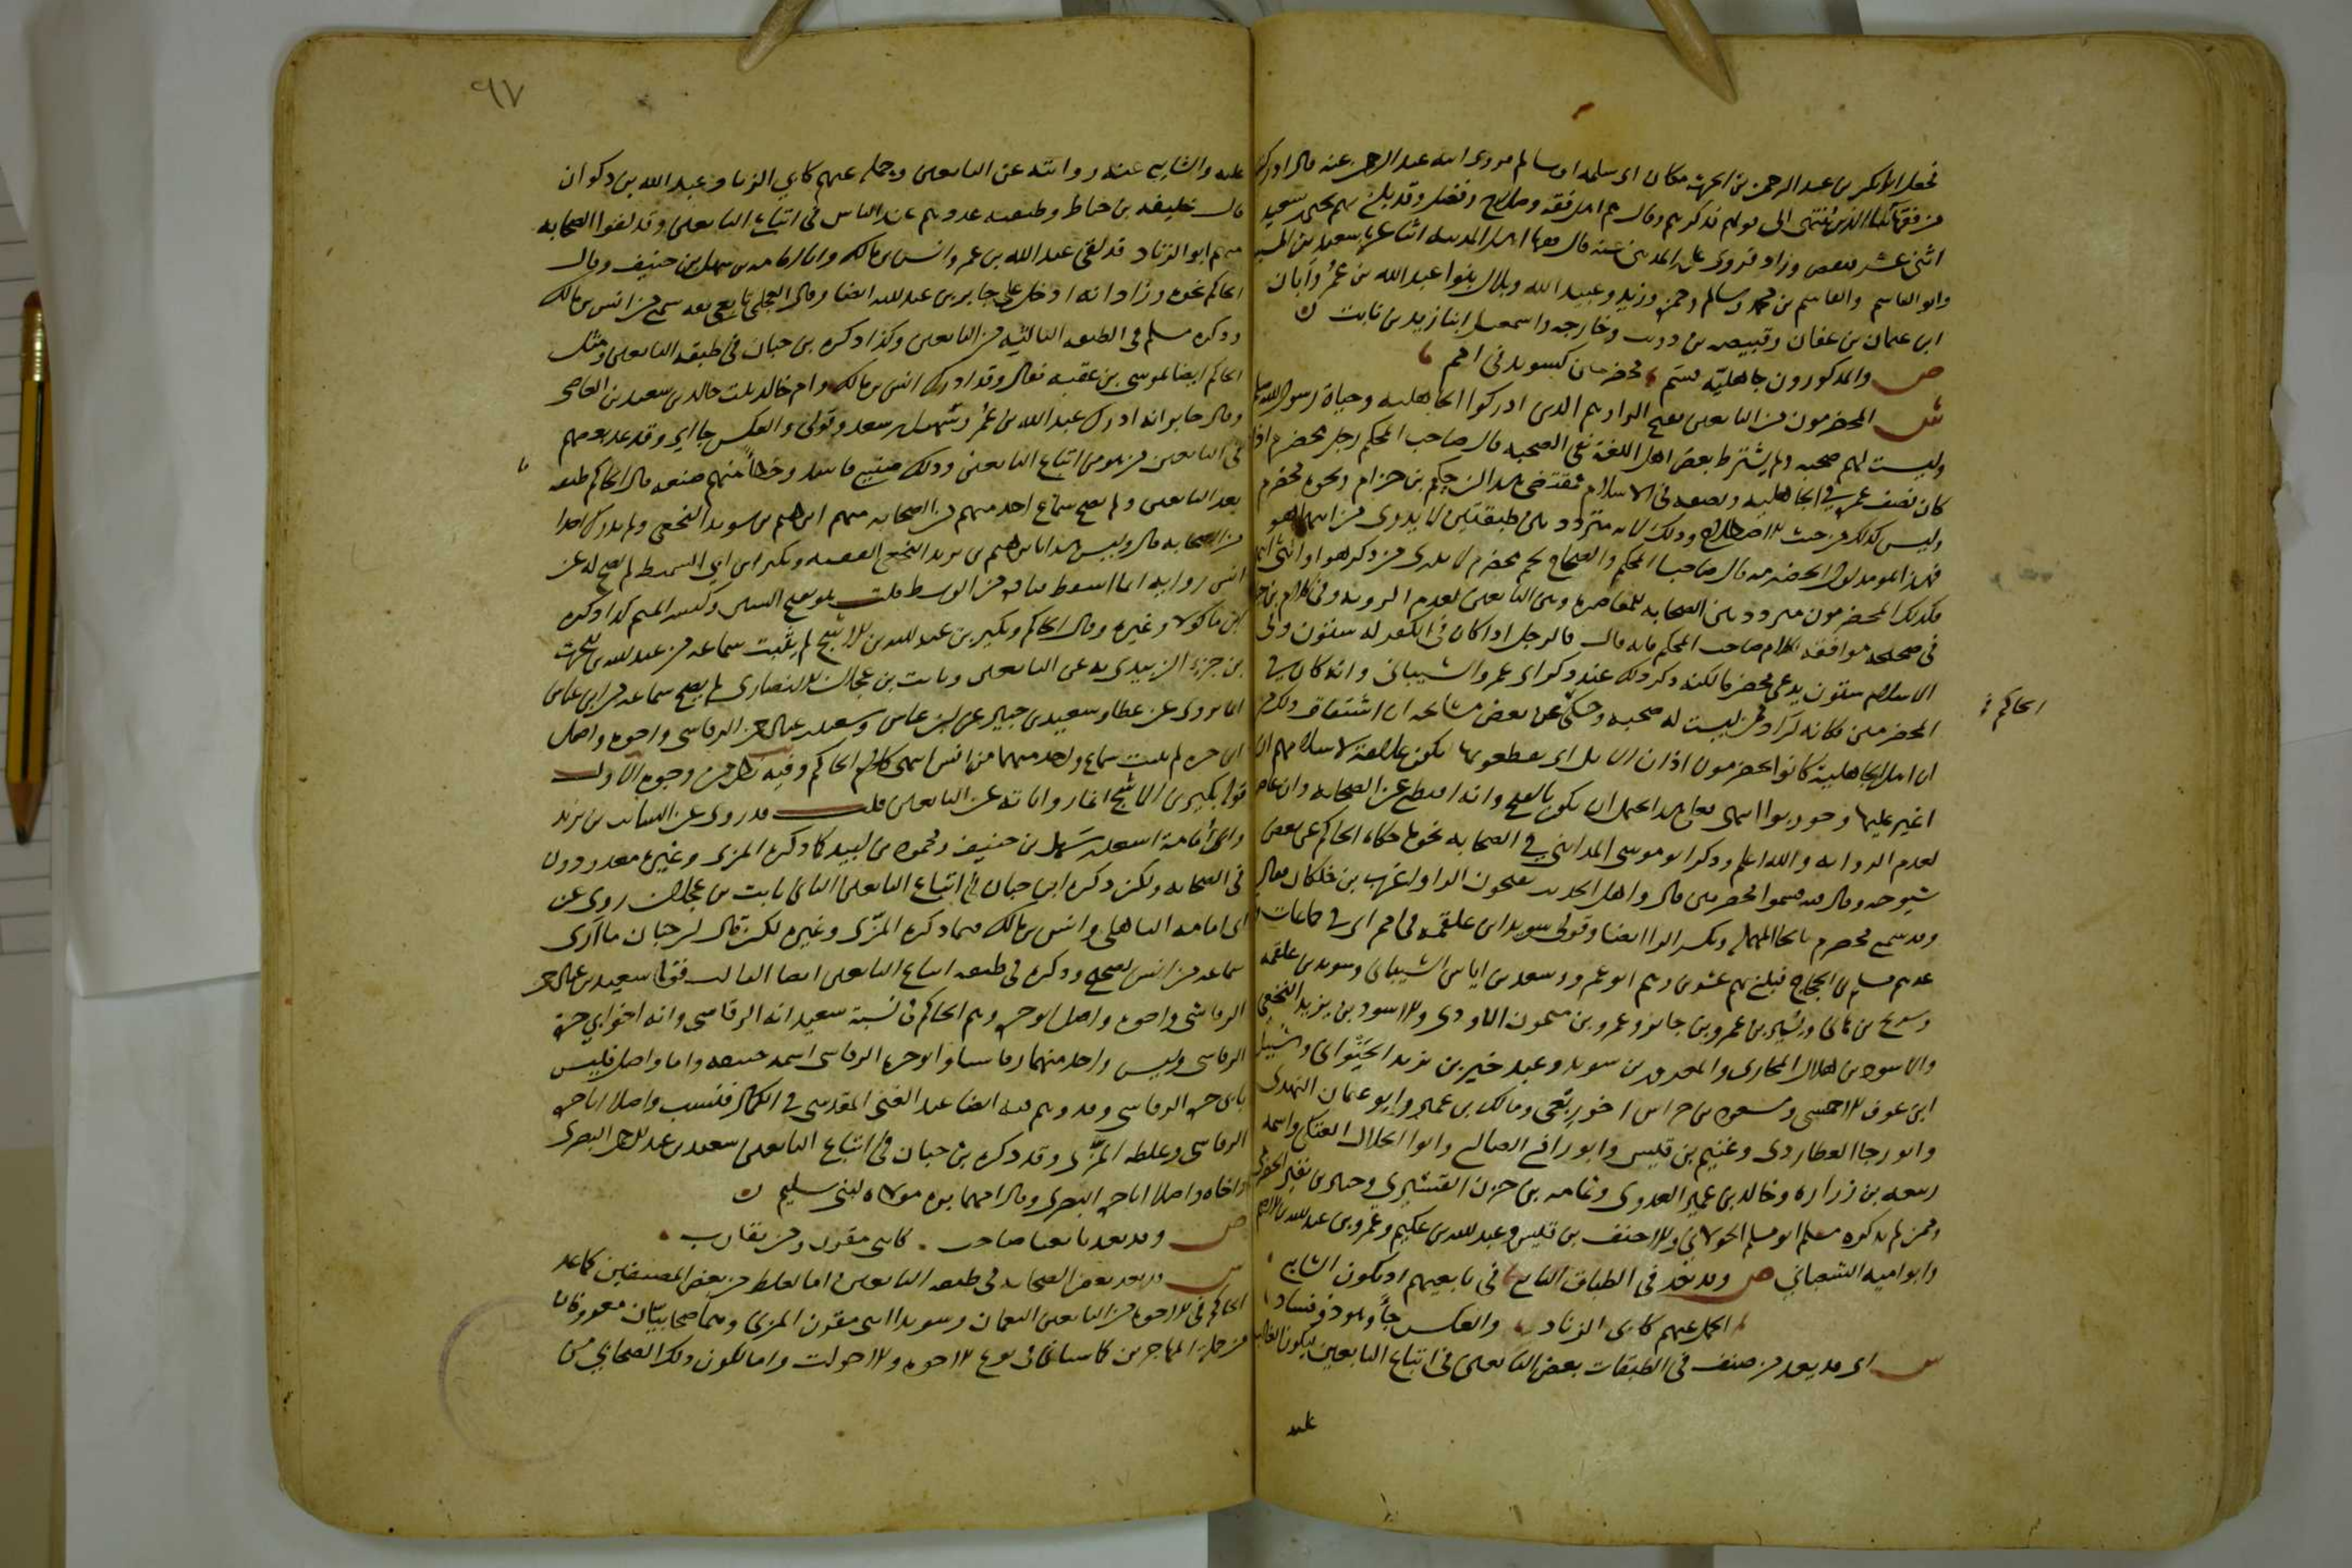 فجعل ابا بكر بن عبد الرحمن بن الحرث مكان ابي سلمة او سالم وروى ابنه عبد الرحمن عنه قال ادركت
من فقهائنا الذين ينتهى الى قولهم فذكرهم وقال هم اهل فقه وصلاح وفضل وقد بلغ بهم يحيى بن سعيد
اثنى عشر فنقص وزاد فروى علي بن المديني عنه قال فقهاء اهل المدينة اثنا عشر سعيد بن المسيب
وابو القاسم والقاسم بن محمد وسالم وحمزة وزيد وعبيد الله وبلال بنوا عبد الله بن عمر وابان
ابن عثمان بن عفان وقبيصة بن ذويب وخارجة واسمعيل ابنا زيد بن ثابت
ص والمدركون جاهلية فسم مخضرمين كسويد في امم
ش المخضرمون من التابعين بفتح الراء وهم الذين ادركوا الجاهلية وحياة رسول الله صلى
وليست لهم صحبة ولم يشترط بعض اهل اللغة نفي الصحبة قال صاحب المحكم رجل مخضرم اذا
كان نصف عمره في الجاهلية ونصفه في الاسلام فمقتضى هذا ان حكيم بن حزام ونحوه مخضرم
وليس كذلك من حيث الاصطلاح وذلك لانه متردد بين طبقتين لا يدرى من ايهما هو
فهذا هو مدلول الخضرمة قال صاحبا المحكم والصحاح لحم مخضرم لا يدرى من ذكر هو او انثى
فكذلك المخضرمون مترددون بين الصحابة للمعاصرة وبين التابعين لعدم الروية وفي كلام بن حبان
في صحيحه موافقة لكلام صاحب المحكم فانه قال والرجل اذا كان في الكفر له ستون وفي
الاسلام ستون يدعى مخضرما لكنه ذكر ذلك عند ذكر ابي عمرو الشيباني وانه كان في
المخضرمين فكانه اراد ممن ليست له صحبة وحكى عن بعض مشايخه ان اشتقاق ذلك من
الحاكم
ان اهل الجاهلية كانوا يخضرمون اذان الابل اي يقطعونها لتكون علامة لاسلامهم ان
اغير عليها وحوربوا انتهى فعلى هذا يحتمل ان يكون بالفتح وانه اقتطع عن الصحابة وان عاصر
لعدم الرواية والله اعلم وذكر ابو موسى المديني في الصحابة نحو ما حكاه الحاكم عن بعض
شيوخه وقال فيه فسموا مخضرمين قال واهل الحديث يفتحون الراء واغرب بن خلكان فقال
وقد سمع محضرم بالحاء المهملة وبكسر الراء ايضا وقولي سويد ابن علقمة في امم اي في جماعات
عدهم مسلم بن الحجاج فبلغ بهم عشرين وهم ابو عمرو سعد بن اياس الشيباني وسويد بن علقمة
وشريح بن هاني ويسير بن عمرو بن جابر وعمرو بن ميمون الاودي والاسود بن يزيد النخعي
والاسود بن هلال المحاربي والمعرور بن سويد وعبد خير بن يزيد الخيواني وشبيل
ابن عوف الاحمسي ومسعود بن حراش اخو ربعي ومالك بن عمير وابو عثمان النهدي
وابو رجا العطاردي وغنيم بن قيس وابو رافع الصائغ وابو الحلال العتكي واسمه
ربيعة بن زرارة وخالد بن عمير العدوي وثمامة بن حزن القشيري وجبير بن نفير الحضرمي
وممن لم يذكره مسلم ابو مسلم الخولاني والاحنف بن قيس وعبد الله بن عكيم وعمرو بن عبد الله بن الاصم
وابو امية الشعباني ص وقد يعد في الطباق التابع في تابعيهم اذ يكون الشايع
الحمل عنهم كابي الزناد والعكس جاء وهو ذو فساد
ش اي قد يعد من صنف في الطبقات بعض التابعين في اتباع التابعين ليكون الغالب
عليه
٩٧
عليه والشايع عنه روايته عن التابعين وحمله عنهم كابي الزناد عبد الله بن ذكوان
قال خليفة بن خياط وطبقة عدوهم عند الناس في اتباع التابعين وقد لقوا الصحابة
منهم ابو الزناد قد لقي عبد الله بن عمر وانس بن مالك وابا امامة بن سهل بن حنيف وقال
الحاكم نحوه وزاد انه ادخل على جابر بن عبد الله ايضا وقال العجلي تابعي ثقة سمع من انس بن مالك
وذكره مسلم في الطبقة الثالثة من التابعين وكذا ذكره بن حبان في طبقة التابعين ومثل
الحاكم ايضا بموسى بن عقبة فقال وقد ادرك انس بن مالك وام خالد بنت خالد بن سعيد بن العاصي
وقال جابر انه ادرك عبد الله بن عمر وسهل بن سعد وقولي والعكس جاء اي وقد عد بعضهم
في التابعين من هو من اتباع التابعين وذلك صنيع فاسد وخطأ منهم صنعه قال الحاكم طبقة
بعد التابعين ولم يصح سماع احد منهم من الصحابة منهم ابرهيم بن سويد النخعي ولم يدرك احدا
من الصحابة قال وليس هذا بابرهيم بن يزيد النخعي الفقيه وبكير ابن ابي السميط لم يصح له عن
انس رواية انما اسقط قتادة من الوسط قلت هو بفتح السين وكسر الميم كذا ذكره
ابن ماكولا وغيره وقال الحاكم وبكير بن عبد الله بن الاشج لم يثبت سماعه من عبد الله بن الحرث
بن جزء الزبيدي يعد في التابعين وثابت بن عجلان الانصاري لم يصح سماعه من ابن عباس
انما يروي عن عطا وسعيد بن جبير عن ابن عباس وسعيد بن عبد الرحمن الرقاشي واخوه واصل
ابو حرة لم يثبت سماع واحد منهما من انس انتهى كلام الحاكم وفيه نظر من وجوه الاول
قوله بكير بن الاشج انما رواياته عن التابعين قلت قد روى عن السائب بن يزيد
وابي امامة اسعد بن سهل بن حنيف ومحمود بن لبيد كما ذكره المزي وغيره معدودون
في الصحابة ولكن ذكره ابن حبان في اتباع التابعين الثاني ثابت بن عجلان روى عن
ابي امامة الباهلي وانس بن مالك فيما ذكره المزي وغيره لكن قال ابن حبان ما ارى
سماعه من انس بصحيح وذكره في طبقة اتباع التابعين ايضا الثالث قوله سعيد بن عبد الرحمن
الرقاشي واخوه واصل ابو حرة وهم الحاكم في نسبة سعيد انه الرقاشي وانه اخو ابي حرة
الرقاشي وليس واحد منهما رقاشيا وابو حرة الرقاشي اسمه حنيفة واما واصل فليس
بابي حرة الرقاشي وقد وهم فيه ايضا عبد الغني المقدسي في الكمال فنسب واصلا ابا حرة
الرقاشي وغلطه المزي وقد ذكره بن حبان في اتباع التابعين سعيد بن عبد الرحمن البصري
واخاه واصلا ابا حرة البصري وقال امهما برة مولاة لبني سليم
ص وقد يعد تابعيا صاحب كابني مقرن ومن يقارب
ش وقد يعد بعض الصحابة في طبقة التابعين اما لغلط من بعض المصنفين كما عد
الحاكم في الاخوة من التابعين النعمان وسويدا ابني مقرن المزني وهما صحابيان معروفان
من جملة المهاجرين كما سياتي في نوع الاخوة والاخوات واما لكون ذلك الصحابي من